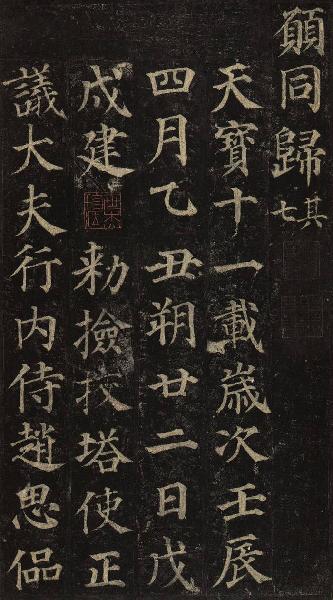 願同歸其七
天寶十一載歲次壬辰
四月乙丑朔廿二日戊
戌建 勅撿挍塔使正
議大夫行内侍趙思偘